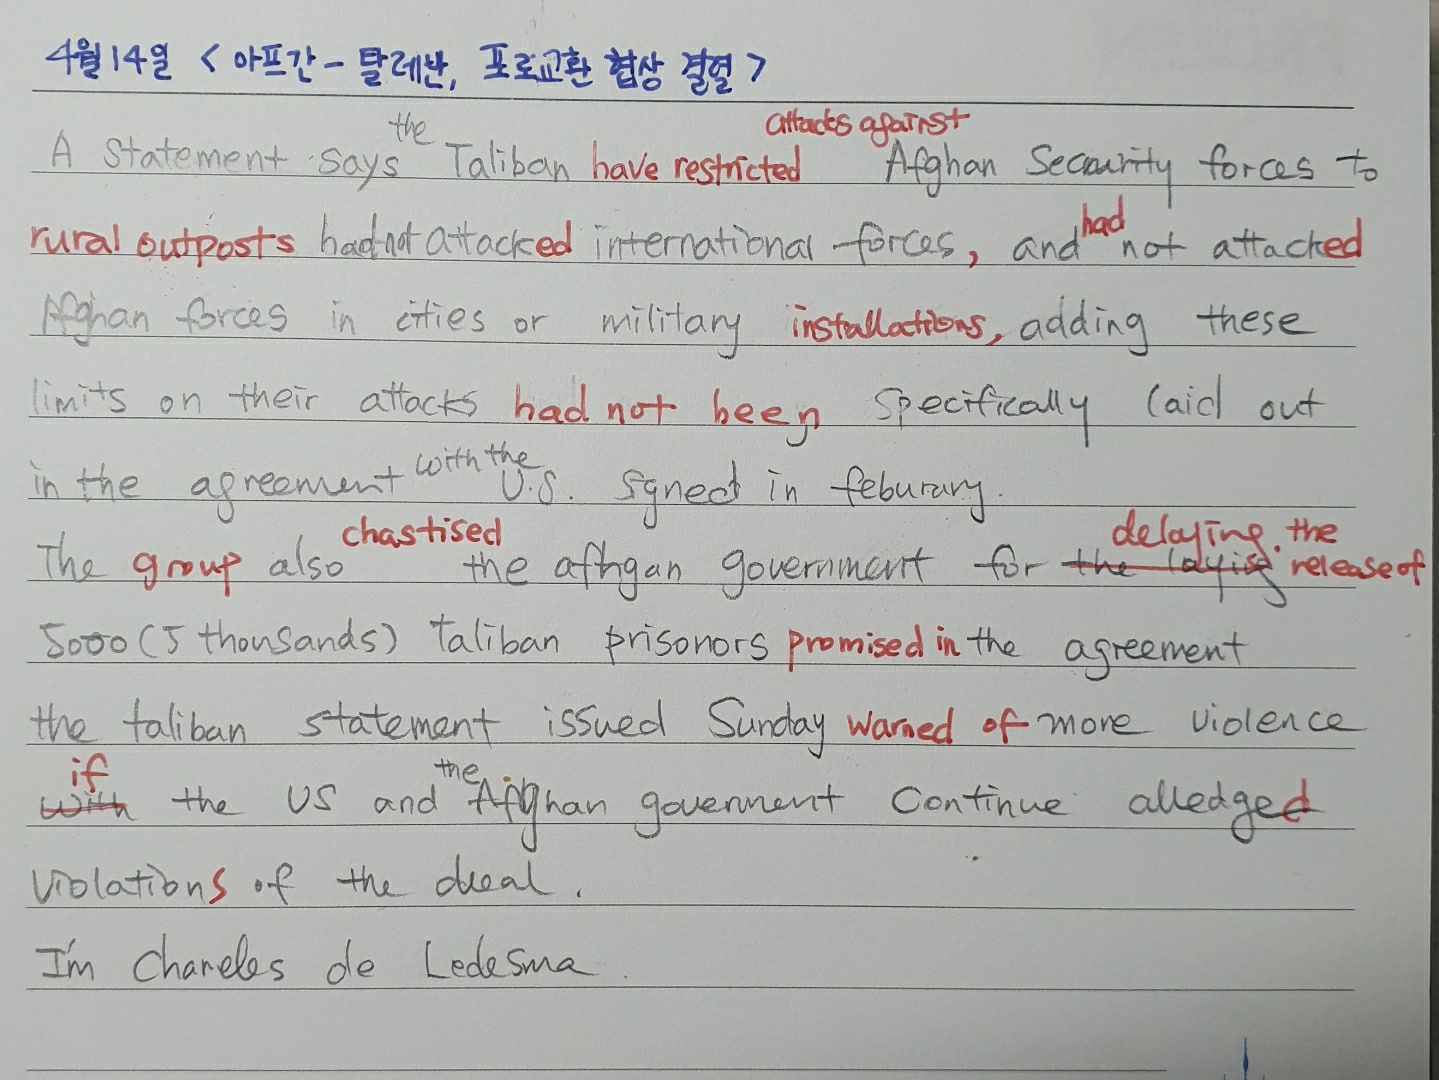 4월14일 < 아프간 - 탈레반, 포로교환 협상 결렬 >
the attacks against
A Statement says Taliban have restricted Afghan Security forces to
had
rural outposts had not attacked international forces, and not attacked
Afghan forces in cities or military installations, adding these
limits on their attacks had not been specifically laid out
with the
in the agreement U.S. signed in feburary.
chastised delaying. the
The group also the afhgan government for the laying release of
5000 (5 thousands) taliban prisonors promised in the agreement
the taliban statement issued Sunday warned of more violence
if the
with the US and Afghan goverment continue alledged
violations of the deal.
I'm Chareles de Ledesma.